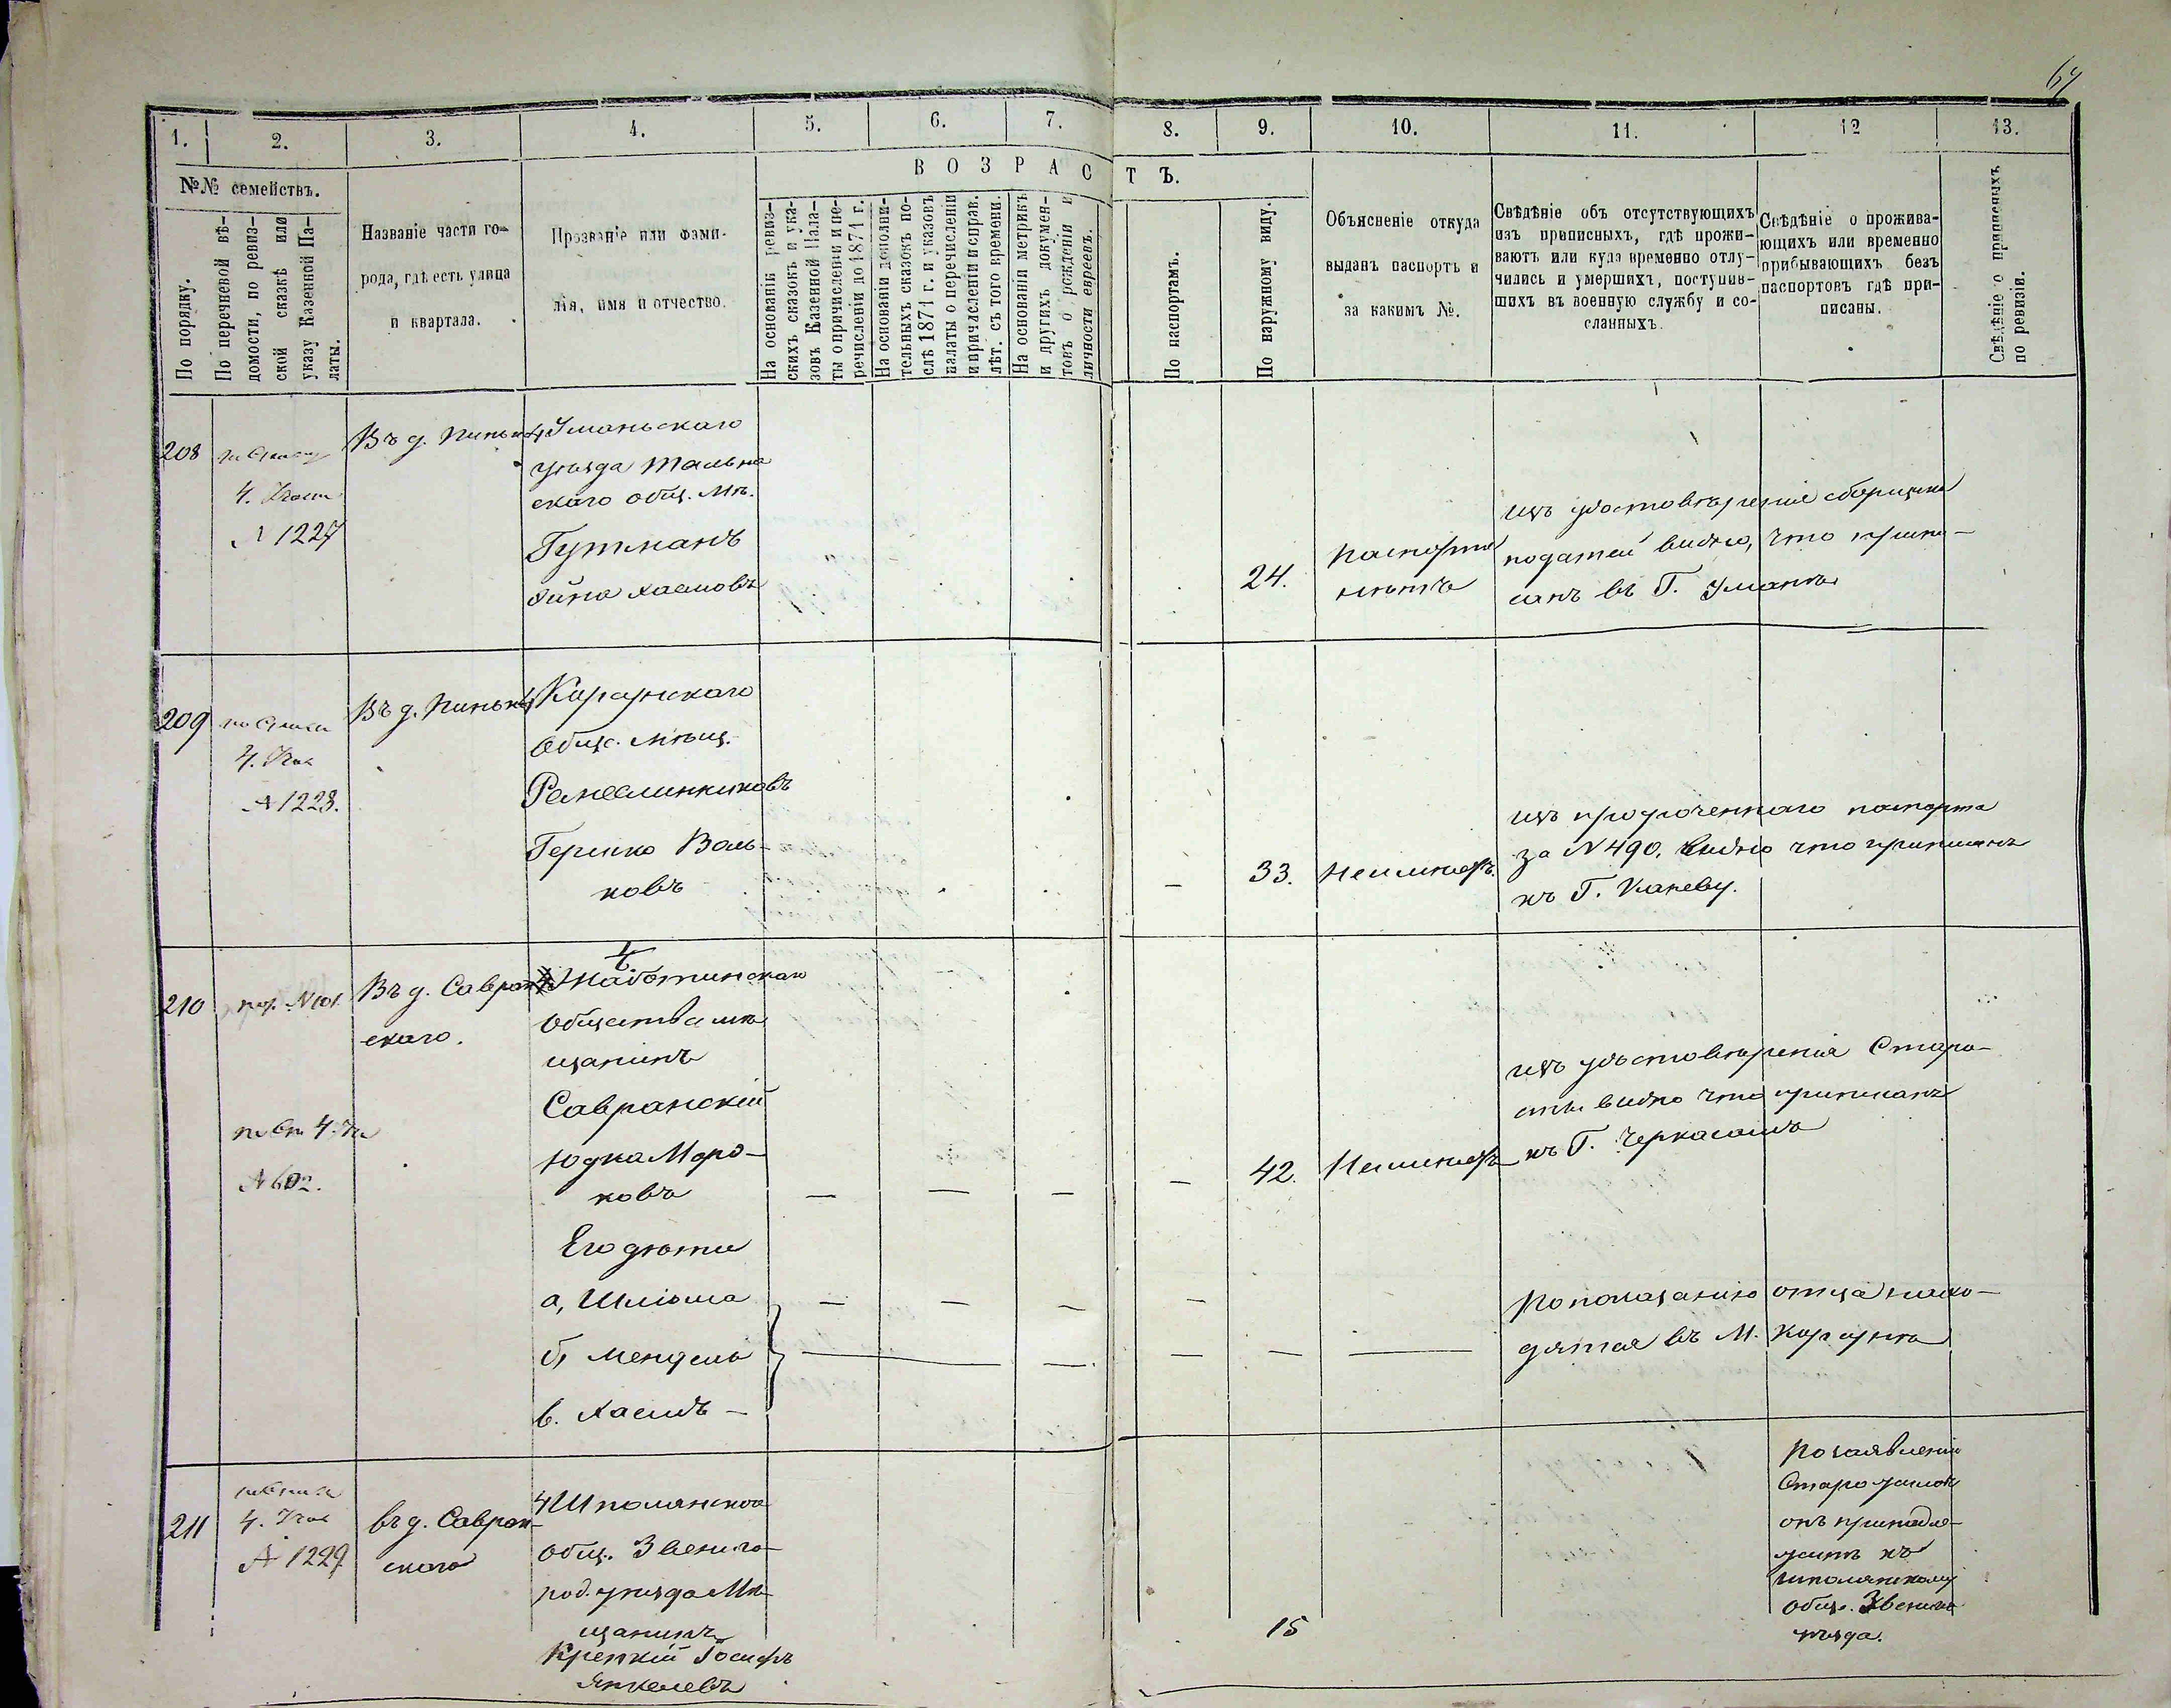 67
1.
2.
3.
4.
5.
6.
7.
8.
9.
10.
11.
12
13.
№№ семействъ.
ВОЗРАСТЪ.
По порядку.
По перечневой вѣ-
домости, по ревиз-
ской сказкѣ или
указу Казенной Па-
латы.
Названіе части го-
рода, гдѣ есть улица
и квартала.
Прозваніе или Фами-
лія, имя и отчество.
На основаніи ревиз-
скихъ сказокъ и ука-
зовъ Казенной Пала-
ты о причисленіи и пе-
речисленіи до 1871 г.
На основаніи дополни-
тельныхъ сказокъ по-
слѣ 1871 г. и указовъ
палаты о перечисленіи
и причисленіи и справ.
лѣт. съ того времени.
На основаніи метрикъ
и другихъ докумен-
товъ о рожденіи и
личности евреевъ.
По паспортамъ.
По наружному виду.
Объясненіе откуда
выданъ паспортъ и
за какимъ №.
Свѣдѣніе объ отсутствующихъ
изъ приписныхъ, гдѣ прожи-
ваютъ или куда временно отлу-
чились и умершихъ, поступив-
шихъ въ военную службу и со-
сланныхъ.
Свѣдѣніе о прожива-
ющихъ или временно
прибывающихъ безъ
паспортовъ гдѣ при-
писаны.
Свѣдѣніе о приписныхъ
по ревизіи.
208
4.
№ 1227
Въ д.
Уманьскаго
уѣзда Тально
скаго общ. Мѣ.
Гутманъ
Хаимовъ
24.
Паспорта
нѣтъ
изъ удостовѣренія сборщика
податей видно, что припи-
санъ въ Г. Умань
209
4.
№ 1228.
Въ д.
Корсунскаго
Общ. Мѣщ.
Ремесленниковъ
Гершко Воль-
ковъ
—
33.
Неимѣетъ.
изъ просроченнаго паспорта
за №490. видно что приписанъ
къ Г. Каневу.
210
№ 601.
4.
№ 602.
Въ д. Савран-
скаго.
Жаботинскаго
Общества мѣ
щанинъ
Савранскій
Юдка Мордковъ
— — — —
42.
Неимѣетъ
изъ удостовѣренія Старо-
сты видно что приписанъ
къ Г. Черкасамъ
Его дѣти
а, Шліома
б, Мендель
в. Хаимъ —
По показанію отца нахо-
дятся въ М. Корсунѣ
211
4.
№ 1229
въ д. Савран-
скаго
Шполянскаго
общ. Звениго-
род. уѣзда Мѣ
щанинъ
Крепкій Іосифъ
Янкелевъ
15
По заявленію
Старо
онъ принадле-
житъ къ
Шполянскому
Общ. Звениго
уѣзда.